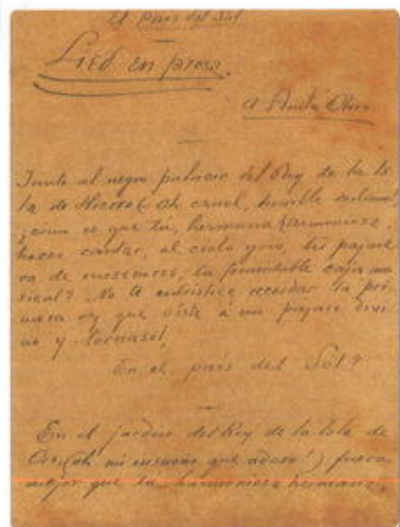 El País del Sol
Lied en prosa.
A Anita Otero
Junto al negro palacio del Rey de la Is
la de Hierro (oh cruel, horrible destierro!)
¿como es que tú, hermana harmoniosa,
haces cantar, al cielo gris, tu pajare
ra de ruiseñores, tu formidable caja mu
sical? No te entristece recordar la pri
mavera en que oiste á un pájaro divi
no y tornasol,
En el país del Sol?
En el jardín del Rey de la Isla de
Oro (oh mi ensueño que adoro!) fuera
mejor que tú, harmoniosa hermana,